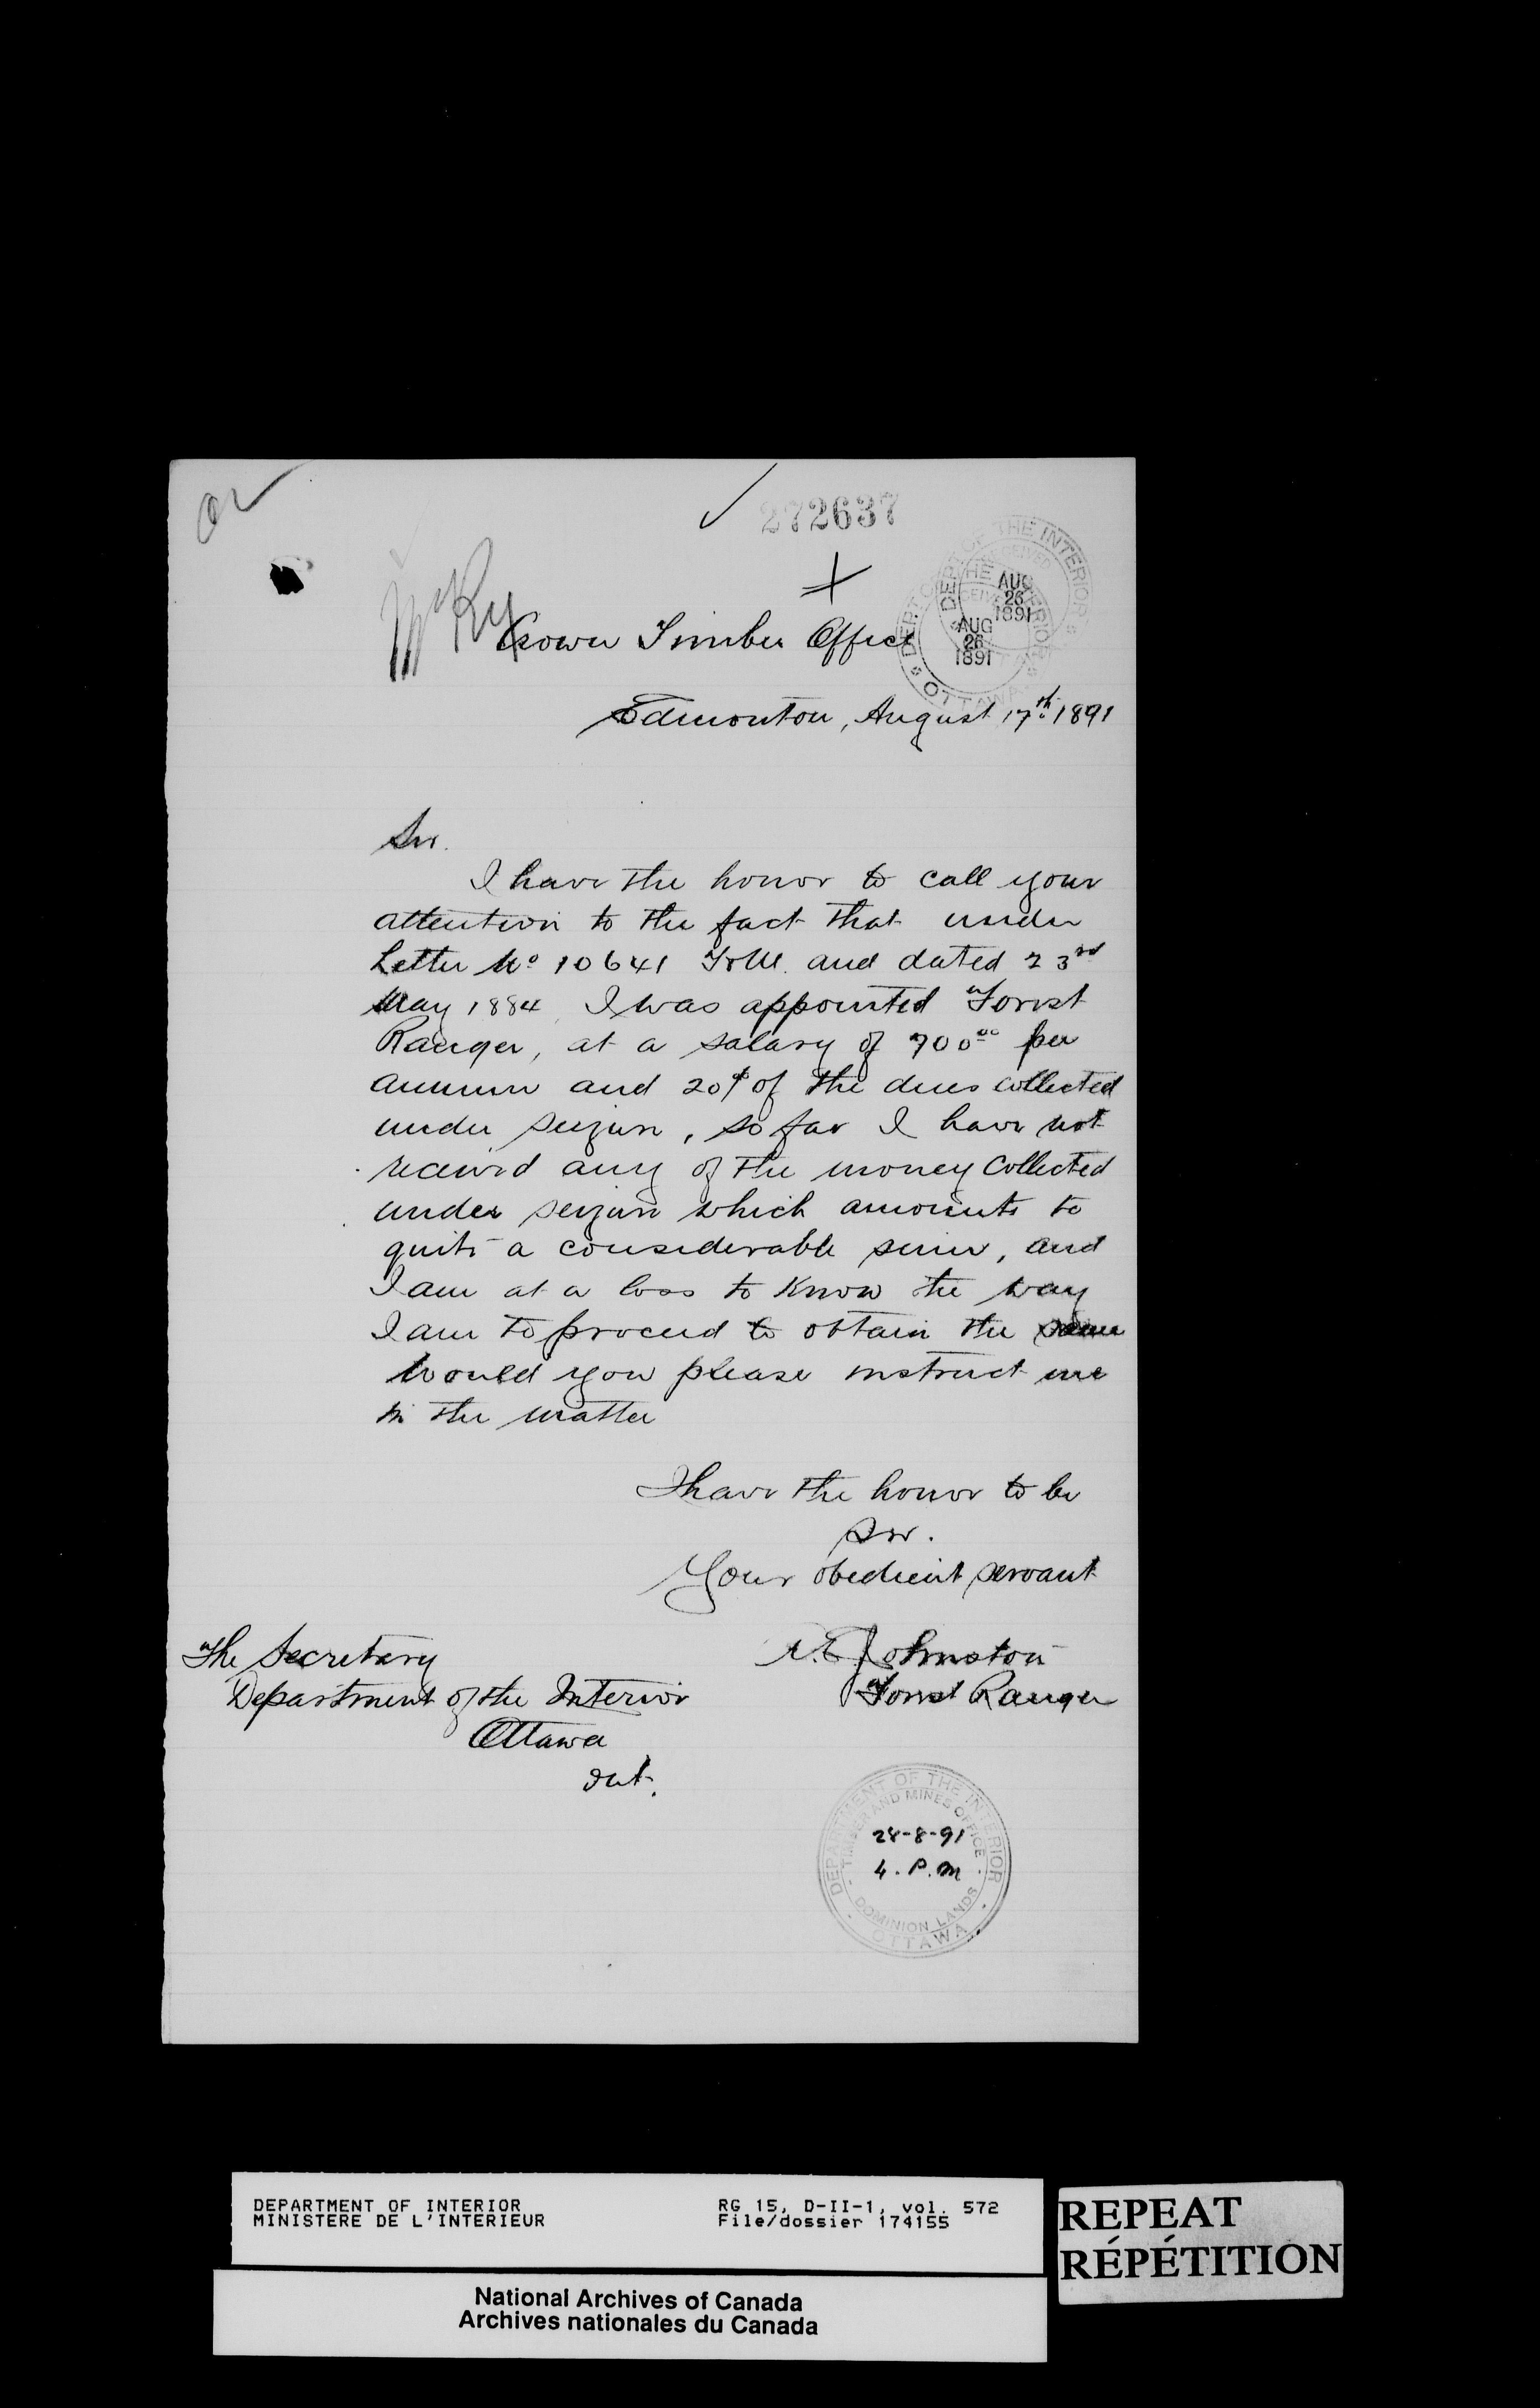 272637
DEPT. OF THE INTERIOR
RECEIVED
AUG
26
1891
AUG
26
1891
OTTAWA
Crown Timber Office
Edmonton, August 17th 1891
Sir.
I have the honor to call your
attention to the fact that under
Letter No 10641 T&M. and dated 23rd
May 1884, I was appointed Forest
Ranger, at a salary of 700.00 per
annum and 20% of the dues collected
under seizure, so far I have not
received any of the money collected
under seizure which amounts to
quite a considerable sum, and
I am at a loss to know the way
I am to proceed to obtain the same
Would you please instruct me
in the matter
I have the honor to be
Sir.
Your obedient servant
Johnston
Forest Ranger
The Secretary
Department of the Interior
Ottawa
Ont.
DEPARTMENT OF THE INTERIOR
TIMBER AND MINES OFFICE
28-8-91
4. P.M
DOMINION LANDS
OTTAWA
DEPARTMENT OF INTERIOR
MINISTERE DE L'INTERIEUR
RG 15, D-II-1, vol. 572
File/dossier 174155
REPEAT
RÉPÉTITION
National Archives of Canada
Archives nationales du Canada